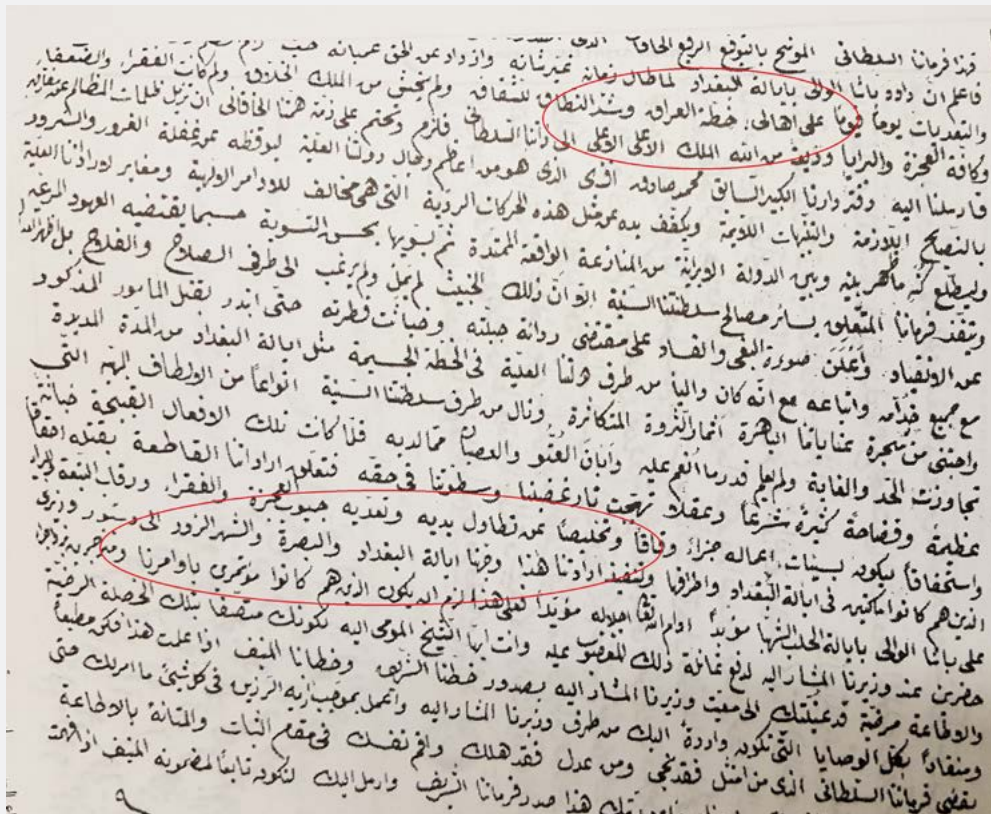 فهذا فرماننا السلطاني الموشح بالتوقيع الرفيع الخاقاني
فاعلم ان داود باشا الوالي بايالة البغداد لما طال زمانه وازداد
والتعديات يوماً فيوماً على اهالي خطة العراق وشد النطاق للشقاق ولم يخش من الملك الخلاق ولم كانت الفقراء والضعفاء
وكافة العجزة والبرايا من الله الملك الاعلى فلزم وتحتم على ذمة همتنا الخاقاني ان نزيل ظلمات المظالم عن
فارسلنا اليه السابق محمد صادق افندي الذي هو من اعاظم رجال دولتنا العلية ليوقظه عن غفلة الغرور والشرور
بالنصايح اللازمة والتنبيهات اللائقة ويكفف يده عن مثل هذه الحركات الردية التي هي مخالف للاوامر الالهية ومغاير لارادتنا العلية
وليطلع بينه وبين الدولة الايرانية من المنازعة الواقعة الممتدة ثم تسويها بحسن التسوية حسبما يقتضيه العهود المرعية
وينفذ فرماننا المتعلق بسائر مصالح سلطنتنا السنية الا ان ذلك الخبيث لم يمل ولم يرغب الى طرفي الصلاح والفلاح بل اظهر
عن الانقياد واعلن صورة البغي والفساد على مقتضى ردائة جبلته وخباثت فطرته حتى ابتدر بقتل المامور المذكور
مع جميع خدامه واتباعه مع انه كان واليا من طرف دولتنا العلية في الخطة الجسيمة مثل ايالة البغداد من المدة المديدة
واجتنى من شجرة عناياتنا الباهرة اثمار الثروة المتكاثرة ونال من طرف سلطنتنا السنية انواعاً من الالطاف البهية التي
تجاوزت الحد والغاية ولم يعلم قدر ما انعم عليه وابان العتو والعصيان فلما كانت تلك الافعال القبيحة خيانة
عظيمة وفضاحة كثيرة شرعاً وعقلاً تهيجت نار غضبنا وسطوتنا في حقه فتعلق ارادتنا القاطعة بقتله احقاقاً
واستحقاقاً ليكون بسيئات اعماله جزاءً وفاقاً وتخليصاً عن تطاول يديه وتعديه جيوب العجزة والفقراء ورقاب
الذين هم كانوا ساكنين في ايالة البغداد واطرافها ولتنفيذ ارادتنا هذا وجهنا ايالة البغداد والبصرة والشهرالزور الى دستور وزيري
علي باشا الوالي بايالة الحلب الشهبا ادام الله تعالى اجلاله مؤيداً فعلى هذا لزم ان يكون الذين هم كانوا مؤتمري باوامرنا
حاضرين عند وزيرنا المشار اليه لدفع غائلة ذلك المغضوب عليه وانت ايها الشيخ المومى اليه لكونك متصفاً بتلك الخصلة الرضية
والاطاعة مرضية قد عينتك الى معيت وزيرنا المشار اليه بصدور خطنا الشريف وخطابنا المنيف اذا علمت هذا فكن مطيعاً
ومنقاداً بكل الوصايا التي تكون واردة اليك من طرف وزيرنا المشار اليه واعمل بموجب رايه الرزين في كل شيئ ما امرك حتى
يقضي فرماننا السلطاني الذي من امتثل فقد نجى ومن عدل فقد هلك واقم نفسك في مقام الثبات والمتانة بالاطاعة
هذا صدر فرماننا الشريف وارسل اليك لتكون تابعاً لمضمونه المنيف